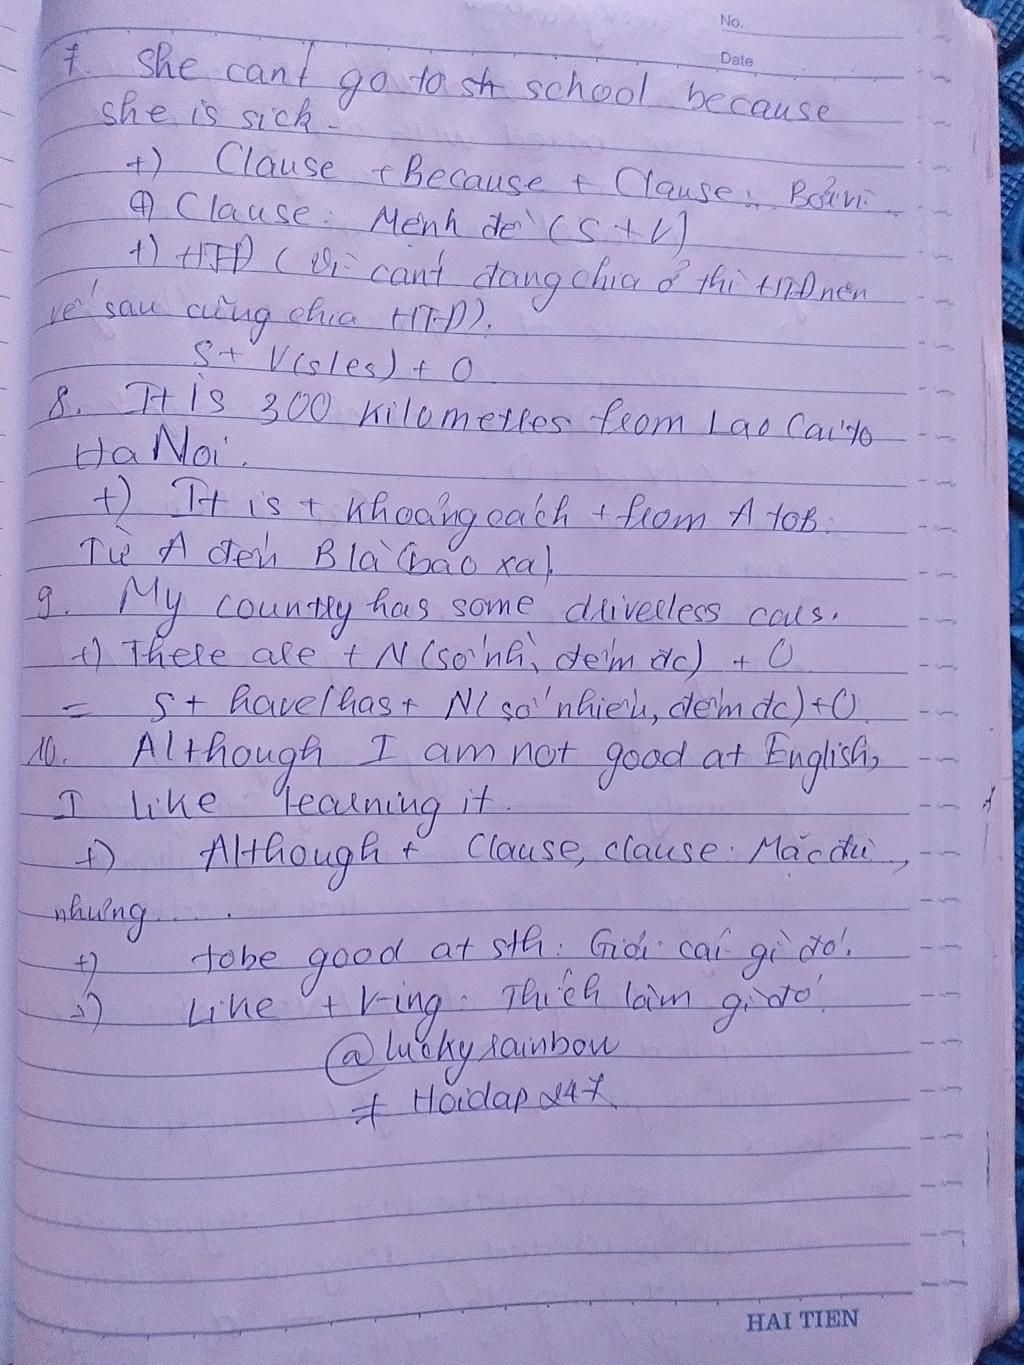 No.
Date
7. She can't go to sh school because
she is sick.
+) Clause + Because + Clause: Bởi vì
+) Clause: Mệnh đề (S + V)
+) HTĐ (Vì can't đang chia ở thì HTĐ nên
vế sau cũng chia HTĐ).
S + V(s/es) + O
8. It is 300 kilometres from Lao Cai to
Ha Noi.
+) It is + khoảng cách + from A to B:
Từ A đến B là (bao xa)
9. My country has some driverless cars.
+) There are + N (số nh`, đếm đc) + O
= S + have/has + N (số nhiều, đếm đc) + O.
10. Although I am not good at English,
I like learning it.
+) Although + Clause, clause: Mặc dù,
nhưng.....
+) tobe good at sth: Giỏi cái gì đó.
+) Like + V-ing: Thích làm gì đó
@luckyrainbow
# Hoidap247
HAI TIEN